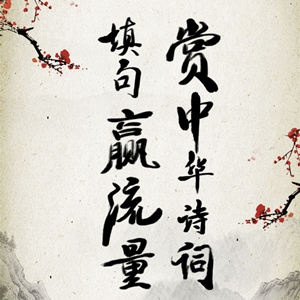 赏中华诗词
填句赢流量